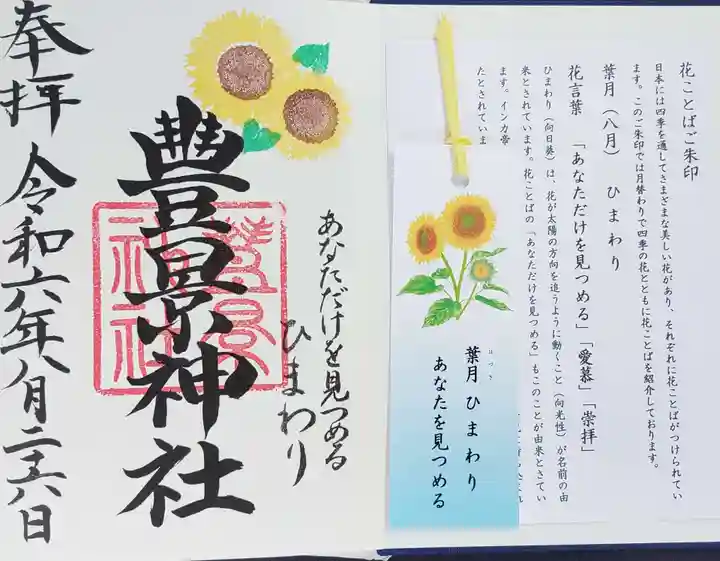 花ことばご朱印
日本には四季を通してさまざまな美しい花があり、それぞれに花ことばがつけられてい
ます。このご朱印では月替わりで四季の花とともに花ことばを紹介しております。
葉月（八月）　ひまわり
花言葉　「あなただけを見つめる」「愛慕」「崇拝」
ひまわり（向日葵）は、花が太陽の方向を追うように動くこと（向光性）が名前の由
来とされています。花ことばの「あなただけを見つめる」もこのことが由来とさてい
ます。インカ帝
たとされていま
葉月 ひまわり
はづき
あなたを見つめる
あなただけを見つめる
ひまわり
豊景神社
奉拝 令和六年八月二十六日